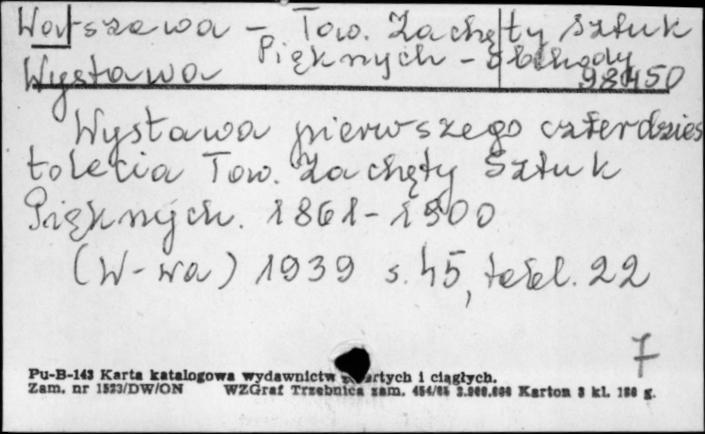 Warszawa - Tow. Zachęty Sztuk
Pięknych - Obchody
Wystawa 98450
Wystawa pierwszego czterdzies
tolecia Tow. Zachęty Sztuk
Pięknych. 1861-1900
(W-wa) 1939 s. 45, tabl. 22
7
Pu-B-143 Karta katalogowa wydawnictw zwartych i ciągłych.
Zam. nr 1523/DW/ON WZGraf Trzebnica zam. 454/65 Karton 3 kl.